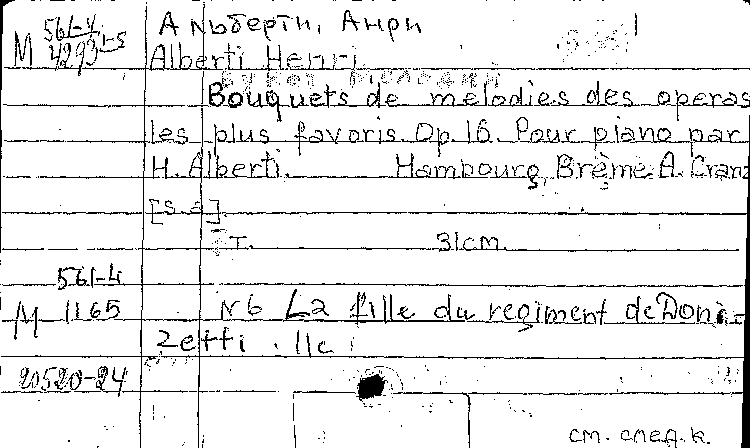 М 561-4 4293 1-5
Альберти, Анри
Alberti Henri
Букет мелодий
Bouquets de melodies des operas
les plus favoris. Op. 16. Pour piano par
H. Alberti. Hambourg, Brème. A. Cranz
[s.a].
т. 31cm.
561-4
М 1165
N6 La fille du regiment de Doni-
zetti. 11c.
20520-24
см. след. к.